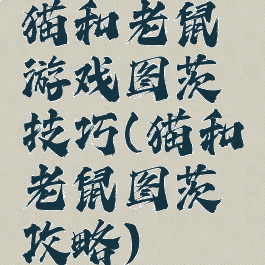 猫和老鼠
游戏图茨
技巧(猫和
老鼠图茨
攻略)